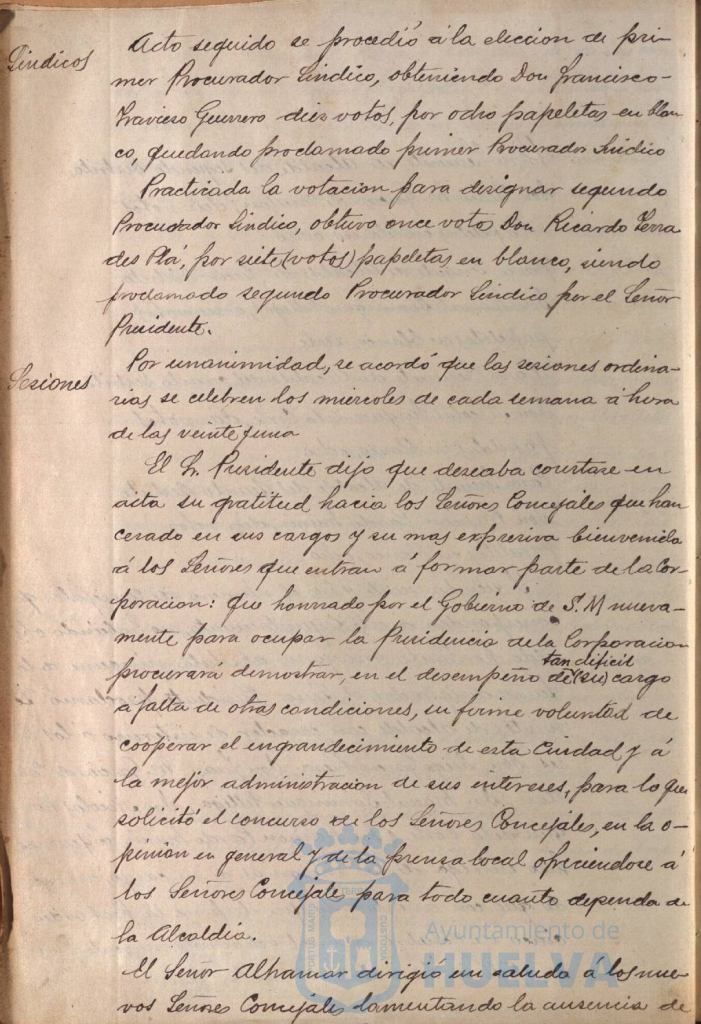 Sindicos
Acto seguido se procedió á la eleccion de pri-
mer Procurador Sindico, obteniendo Don Francisco
Travieso Guerrero diez votos, por ocho papeletas en blan
co, quedando proclamado primer Procurador Sindico
Practicada la votacion para designar segundo
Procurador Sindico, obtuvo once votos Don Ricardo Terra
des Plá, por siete (votos) papeletas en blanco, siendo
proclamado segundo Procurador Sindico por el Señor
Presidente.
Sesiones
Por unanimidad, se acordó que las sesiones ordina-
rias se celebren los miercoles de cada semana á hora
de las veinte y una
El Sr. Presidente dijo que deseaba constase en
acta su gratitud hacia los Señores Concejales que han
cesado en sus cargos y su mas expresiva bienvenida
á los Señores que entran á formar parte de la Cor-
poracion: que honrado por el Gobierno de S. M nueva-
mente para ocupar la Presidencia de la Corporacion
procurará demostrar, en el desempeño de (su) tan dificil cargo
a falta de otras condiciones, su firme voluntad de
cooperar el engrandecimiento de esta Ciudad y á
la mejor administracion de sus intereses, para lo que
solicitó el concurso de los Señores Concejales, en la o-
pinion en general y de la prensa local ofreciendose á
los Señores Concejales para todo cuanto dependa de
la Alcaldia.
El Señor Alhamar dirigió un saludo á los nue-
vos Señores Concejales lamentando la ausencia de
Ayuntamiento de
HUELVA